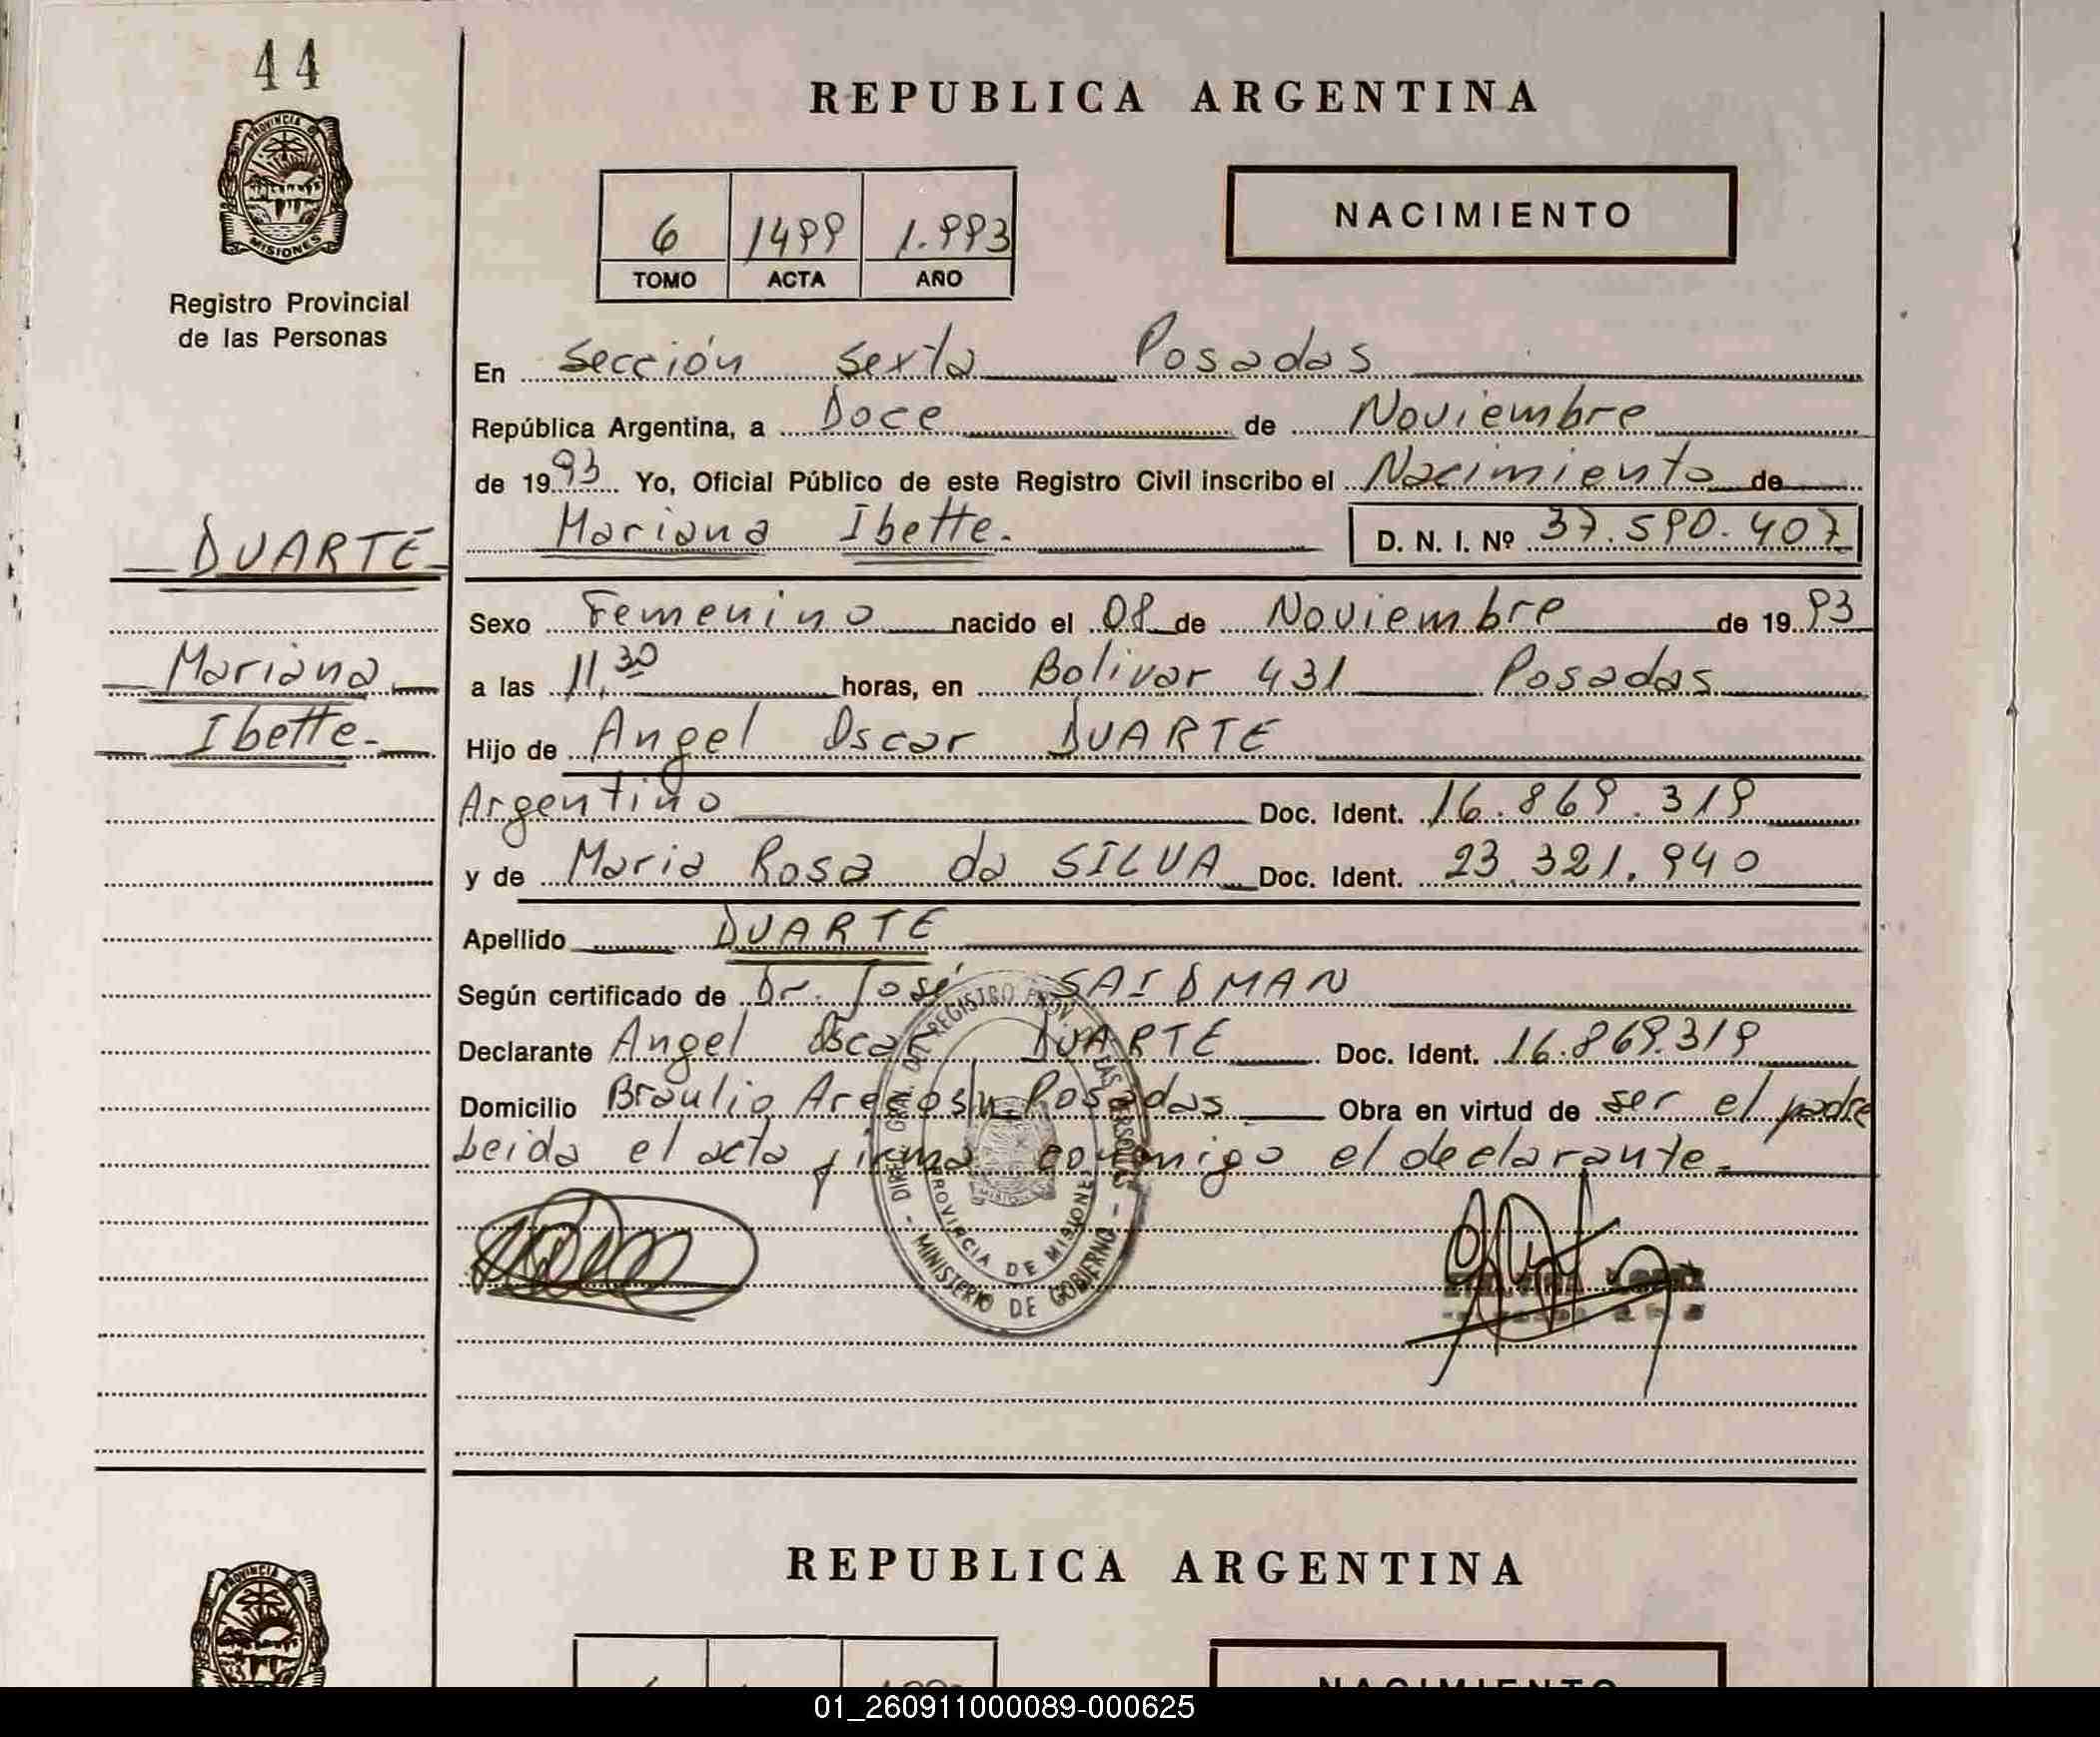 44
REPUBLICA ARGENTINA
PROVINCIA DE
MISIONES
Registro Provincial
de las Personas
6 1499 1.993
TOMO ACTA AÑO
NACIMIENTO
En Sección Sexta Posadas
República Argentina, a Doce de Noviembre
de 1993 Yo, Oficial Público de este Registro Civil inscribo el Nacimiento de
DUARTE Mariana Ibette. D. N. I. Nº 37.590.407
Sexo Femenino nacido el 08 de Noviembre de 1993
Mariana a las 11,30 horas, en Bolivar 431 Posadas
Ibette- Hijo de Angel Oscar DUARTE
Argentino Doc. Ident. 16.869.319
y de Maria Rosa da SILVA Doc. Ident. 23.321.940
Apellido DUARTE
Según certificado de Dr. José SAIDMAN
Declarante Angel Oscar DUARTE Doc. Ident. 16.869.319
Domicilio Braulio Posadas Obra en virtud de ser el padre
Leida el acta firma conmigo el declarante.
DIREC. GRAL. DE REGISTRO PROV. DE LAS PERSONAS
PROVINCIA DE MISIONES
MINISTERIO DE GOBIERNO
REPUBLICA ARGENTINA
PROVINCIA DE
NACIMIENTO
01_260911000089-000625